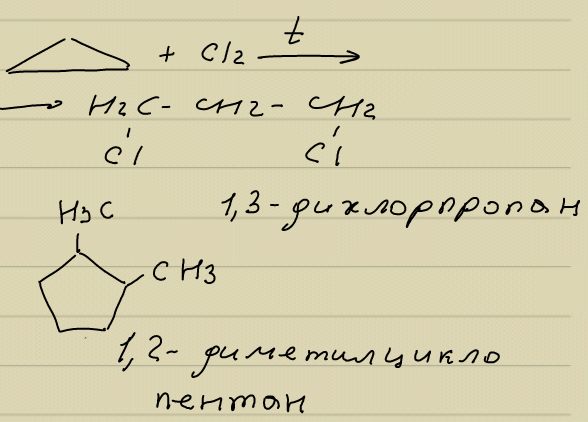 + Cl2 t
H2C - CH2 - CH2
Cl Cl
1,3-дихлорпропан
H3C
CH3
1,2-диметилцикло
пентан